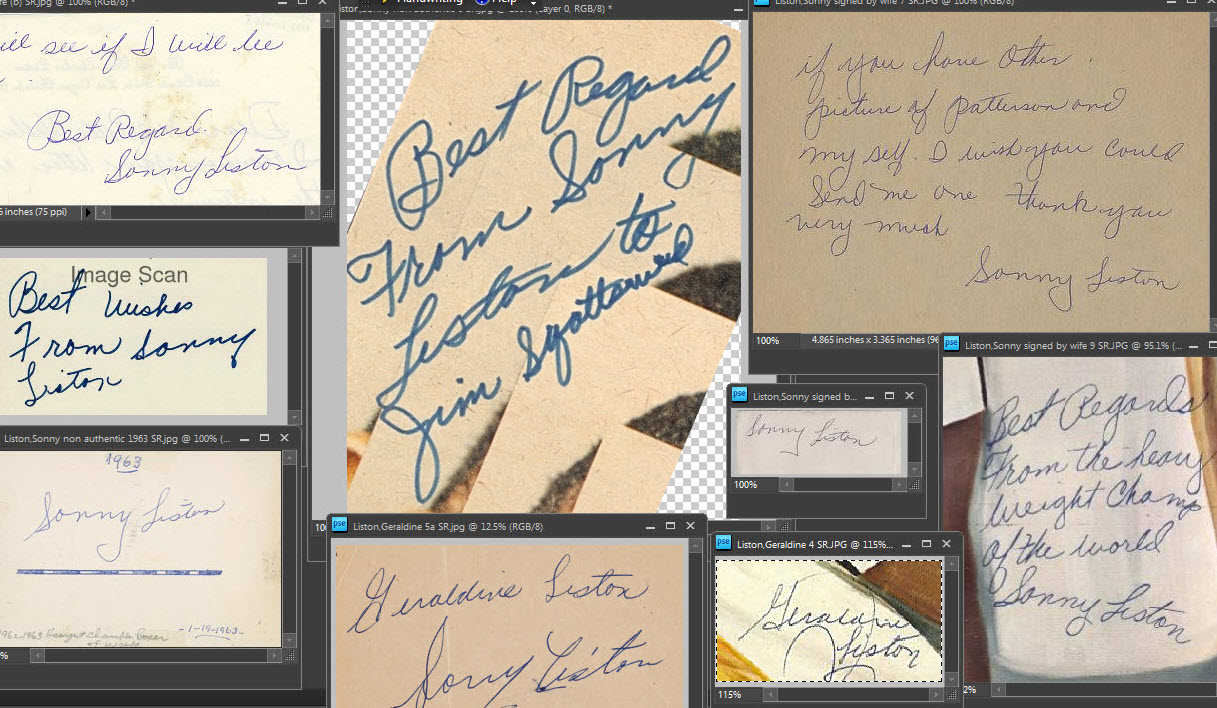 re (b) SR.jpg @ 100% (RGB/8) *
will see if I will be
Best Regard.
Sonny Liston
6 inches (75 ppi)
Image Scan
Best Wishes
From Sonny
Liston
Liston,Sonny non authentic 1963 SR.jpg @ 100% (...
1963
Sonny Liston
-1-19-1963-
1962-1963 Heavywt Champion Boxer
of World
Handwriting
Help
(Layer 0, RGB/8) *
Best Regard
From Sonny
Liston to
Jim
10
Liston,Geraldine 5a SR.jpg @ 12.5% (RGB/8)
Geraldine Liston
Sonny Liston
Liston,Sonny signed by wife 7 SR.JPG @ 100% (RGB/8)
if you have Other.
picture of Patterson and
my self. I wish you Could
Send me one thank you
very much
Sonny Liston
100%
4.865 inches x 3.365 inches (96
Liston,Sonny signed b...
Sonny Liston
100%
Liston,Geraldine 4 SR.JPG @ 115%...
Geraldine
Liston
115%
Liston,Sonny signed by wife 9 SR.JPG @ 95.1% (...
Best Regards
From the heavy
Weight Champ
of the world
Sonny Liston
2%